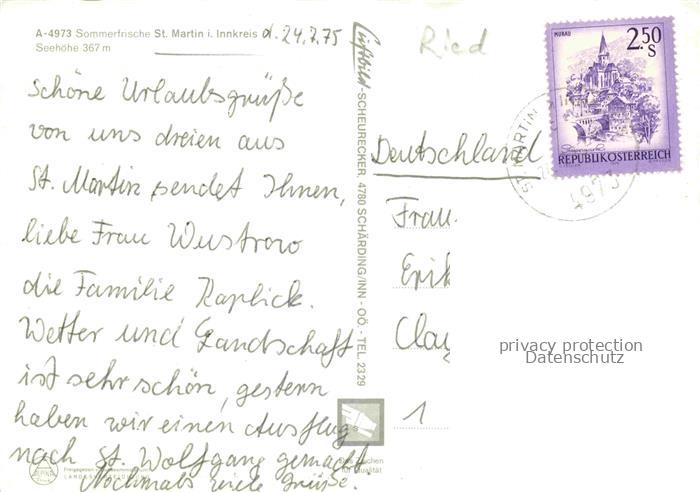 A-4973 Sommerfrische St. Martin i. Innkreis d. 24.7.75
Seehöhe 367 m
schöne Urlaubsgrüße
von uns dreien aus
St. Martin sendet Ihnen,
liebe Frau Wustrow
die Familie Raplick.
Wetter und Landschaft
ist sehr schön, gestern
haben wir einen Ausflug
nach St. Wolfgang gemacht.
Nochmals viele Grüße.
Luftbild-SCHEURECKER, 4780 SCHÄRDING/INN - OÖ. - TEL. 2329
Ried
MURAU
2.50
S
REPUBLIK ÖSTERREICH
ST. MARTIN
4973
Deutschland
Frau
Erik
Clay
1
privacy protection
Datenschutz
für Qualität